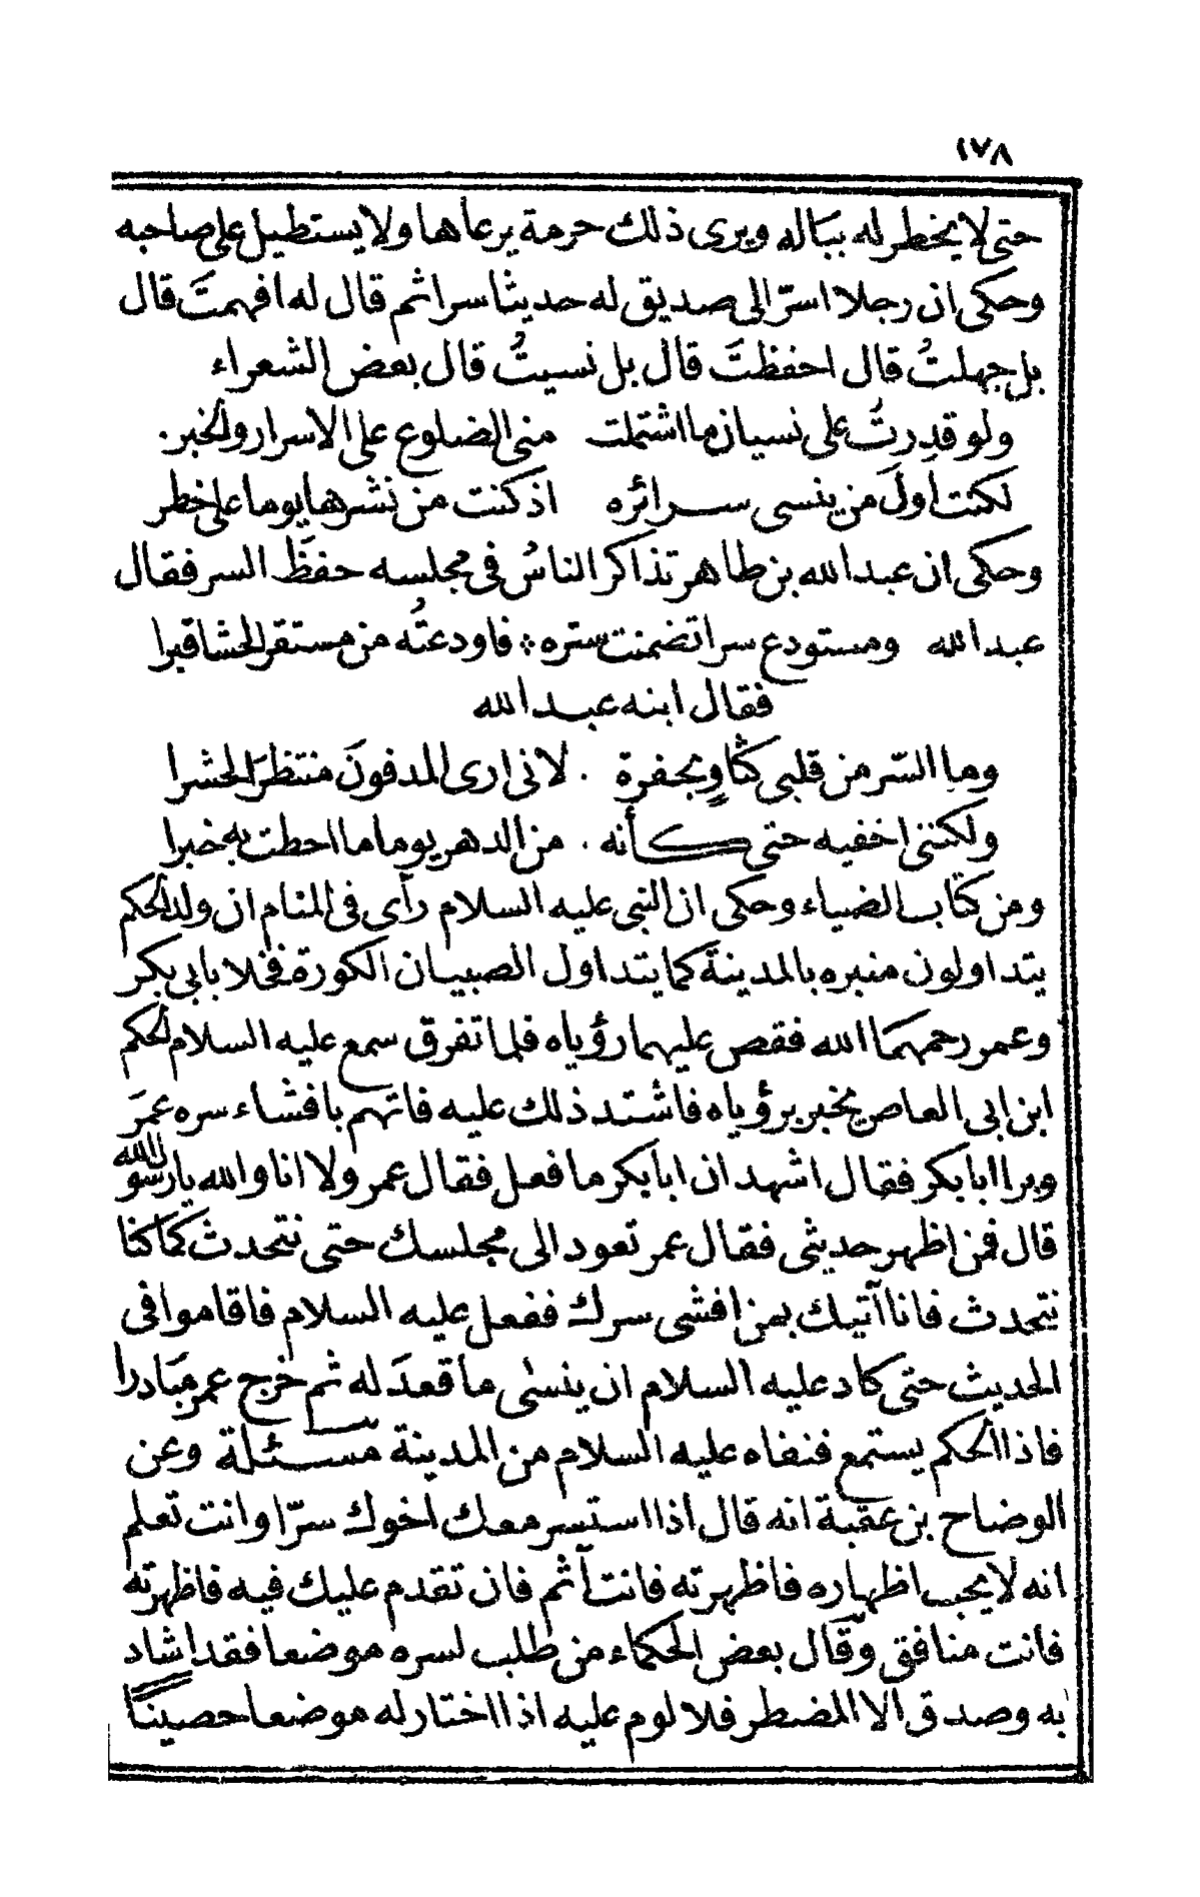 ١٧٨
حتى لا يخطر له بباله ويرى ذلك حرمة يرعاها ولا يستطيل على صاحبه
وحكى ان رجلا اسرّ الى صديق له حديثا سرا ثم قال له افهمتَ قال
بل جهلتُ قال احفظتَ قال بل نسيتُ قال بعض الشعراء
ولو قدِرتُ على نسيان ما اشتملت منى الضلوع على الاسرار والخبر.
لكنت اولَ من ينسى سرائره اذ كنت من نشرها يوما على خطر
وحكى ان عبدالله بن طاهر تذاكر الناسُ فى مجلسه حفظَ السر فقال
عبدالله ومستودع سرا تضمنت ستره ؞ فاودعتُه من مستقر الحشا قبرا
فقال ابنه عبدالله
وما السّر من قلبى كثاوٍ بحفرة . لانى ارى المدفونَ منتظرَ الحشرا
ولكننى اخفيه حتى كأنه . من الدهر يوما ما احطت به خبرا
ومن كتاب الضياء وحكى ان النبى عليه السلام رأى فى المنام ان ولد الحكم
يتداولون منبره بالمدينة كما يتداول الصبيان الكورة فخلا بابى بكر
وعمر رحمهما الله فقص عليهما رؤياه فلما تفرق سمع عليه السلام الحكم
ابن ابى العاص يخبر برؤياه فاشتد ذلك عليه فاتهم بافشاء سره عمرَ
وبرا ابا بكر فقال اشهد ان ابا بكر ما فعل فقال عمر ولا انا والله يا رسول الله
قال فمن اظهر حديثى فقال عمر تعود الى مجلسك حتى نتحدث كما كنا
نتحدث فانا آتيك بمن افشى سرك ففعل عليه السلام فاقاموا فى
الحديث حتى كاد عليه السلام ان ينسى ما قعدَ له ثم خرج عمر مبَادرا
فاذا الحكم يستمع فنفاه عليه السلام من المدينة مسئلة وعن
الوضاح بن عقبة انه قال اذا استسر معك اخوك سرّا وانت تعلم
انه لا يجب اظهاره فاظهرته فانت آثم فان تقدم عليك فيه فاظهرته
فانت منافق وقال بعض الحكماء من طلب لسره موضعا فقد اشاد
به وصدق الا المضطر فلا لوم عليه اذا اختار له موضعا حصينًا